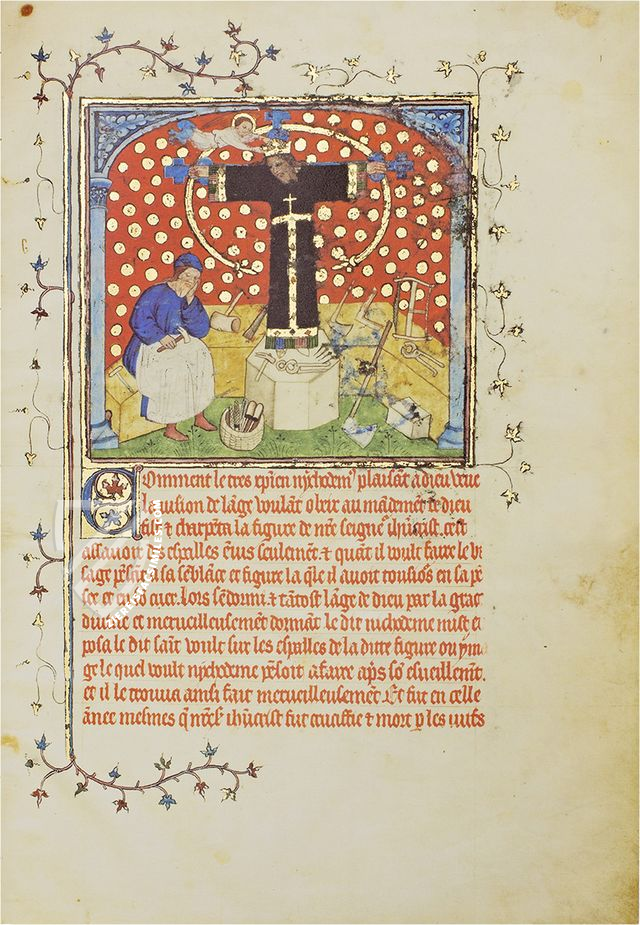 Comment le tres cp̄ien nychodem9 plaisāt a dieu veue
la vision de lāge voulāt obeir au mādemēt de dieu
fist & charpēta la figure de nr̄e seigne ihūcrist cest
assavoir des espalles ēius seulemēt. & quāt il voult faire le vi
sage pēsāt a sa sēblāce et figure la q̄le il avoit tousio9s en sa pē
see et en so cuer. Lors sēdormi. & tātost lāge de dieu par la grac
divine et merveilleusemēt dormāt le dit nichodeme mist et
posa le dit sāit voult sur les espalles de la ditte figure ou yma
ge le quel voult nychodeme pēsoit a faire ap̄s so esveillemēt.
et il le trouva ainsi fait merveilleusemēt. Et fut en celle
āñee mesmes q̄ nr̄e s ihūcrist fut crucifie & mort p les iuifs